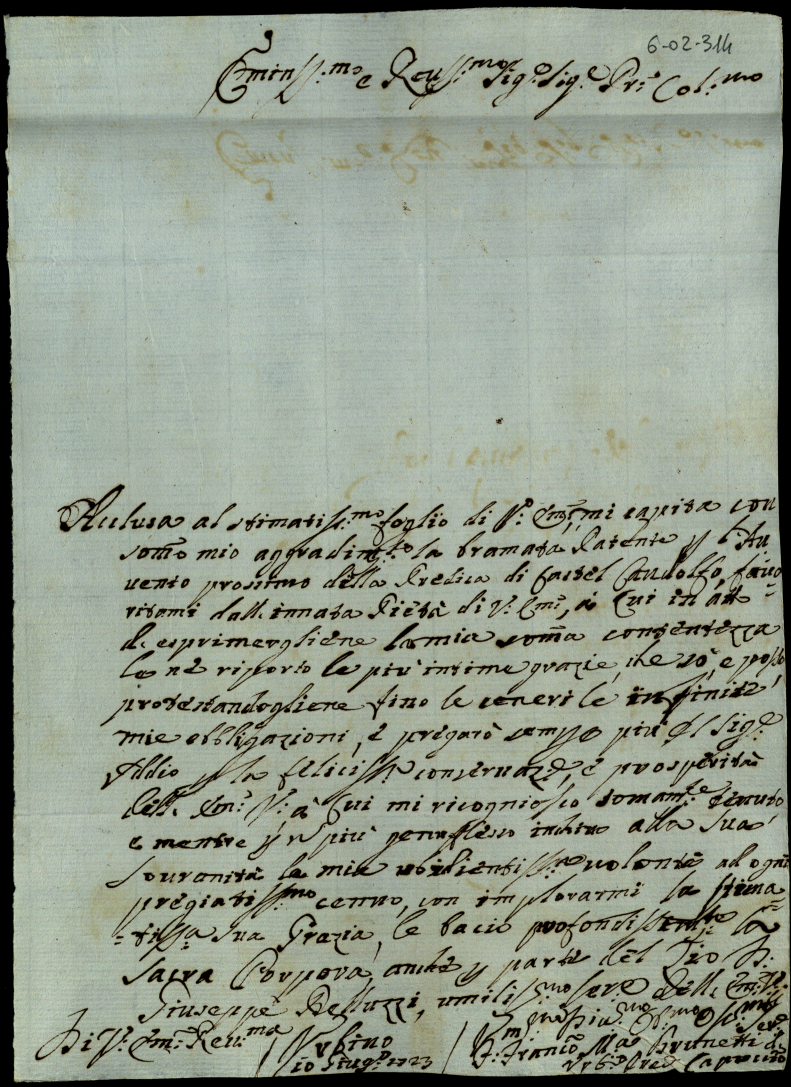 6-02-314
Eminss.mo e Reuss.mo Sig.e Sig.e Pr.e Col.mo
Acclusa al stimatiss.mo foglio di V. Em. mi capita con
som̃o mio aggradim.to la bramata Patente p l'Au
uento prossimo della Predica di Castel Gandolfo, fauo
ritami dall'innata Pietà di V. Em., à Cui in att
d'esprimergliene la mia som̃a contentezza
le nè riporto le più intime grazie, che sò, e posso
protestandogliene fino le ceneri le infinite
mie obbligazioni, è pregarò sempre più il Sig.e
Iddio p la feliciss.a conseruaz.e, è prosperità
dell' Em. V. à Cui mi ricognosco somam.te tenuto
e mentre più genuflesso inchino alla Sua
Souranità la mia ubidientiss.a uolontà ad ogni
pregiatiss.mo cenno, con implorarmi la stima
tiss.a sua Grazia, le bacio profondissam.te la
Sacra Porpora, anche p parte del Zio D.
Giuseppe Belluzzi, umiliss.mo seru.e dell' Em. V.
Di V. Em. Reu.ma
Urbino
10 Giug.o 1723
Um.mo Diu.mo Obl.mo Seru.e
F. Franc.o Ma Brunetti da
Urb.o Pred.e Capuccino